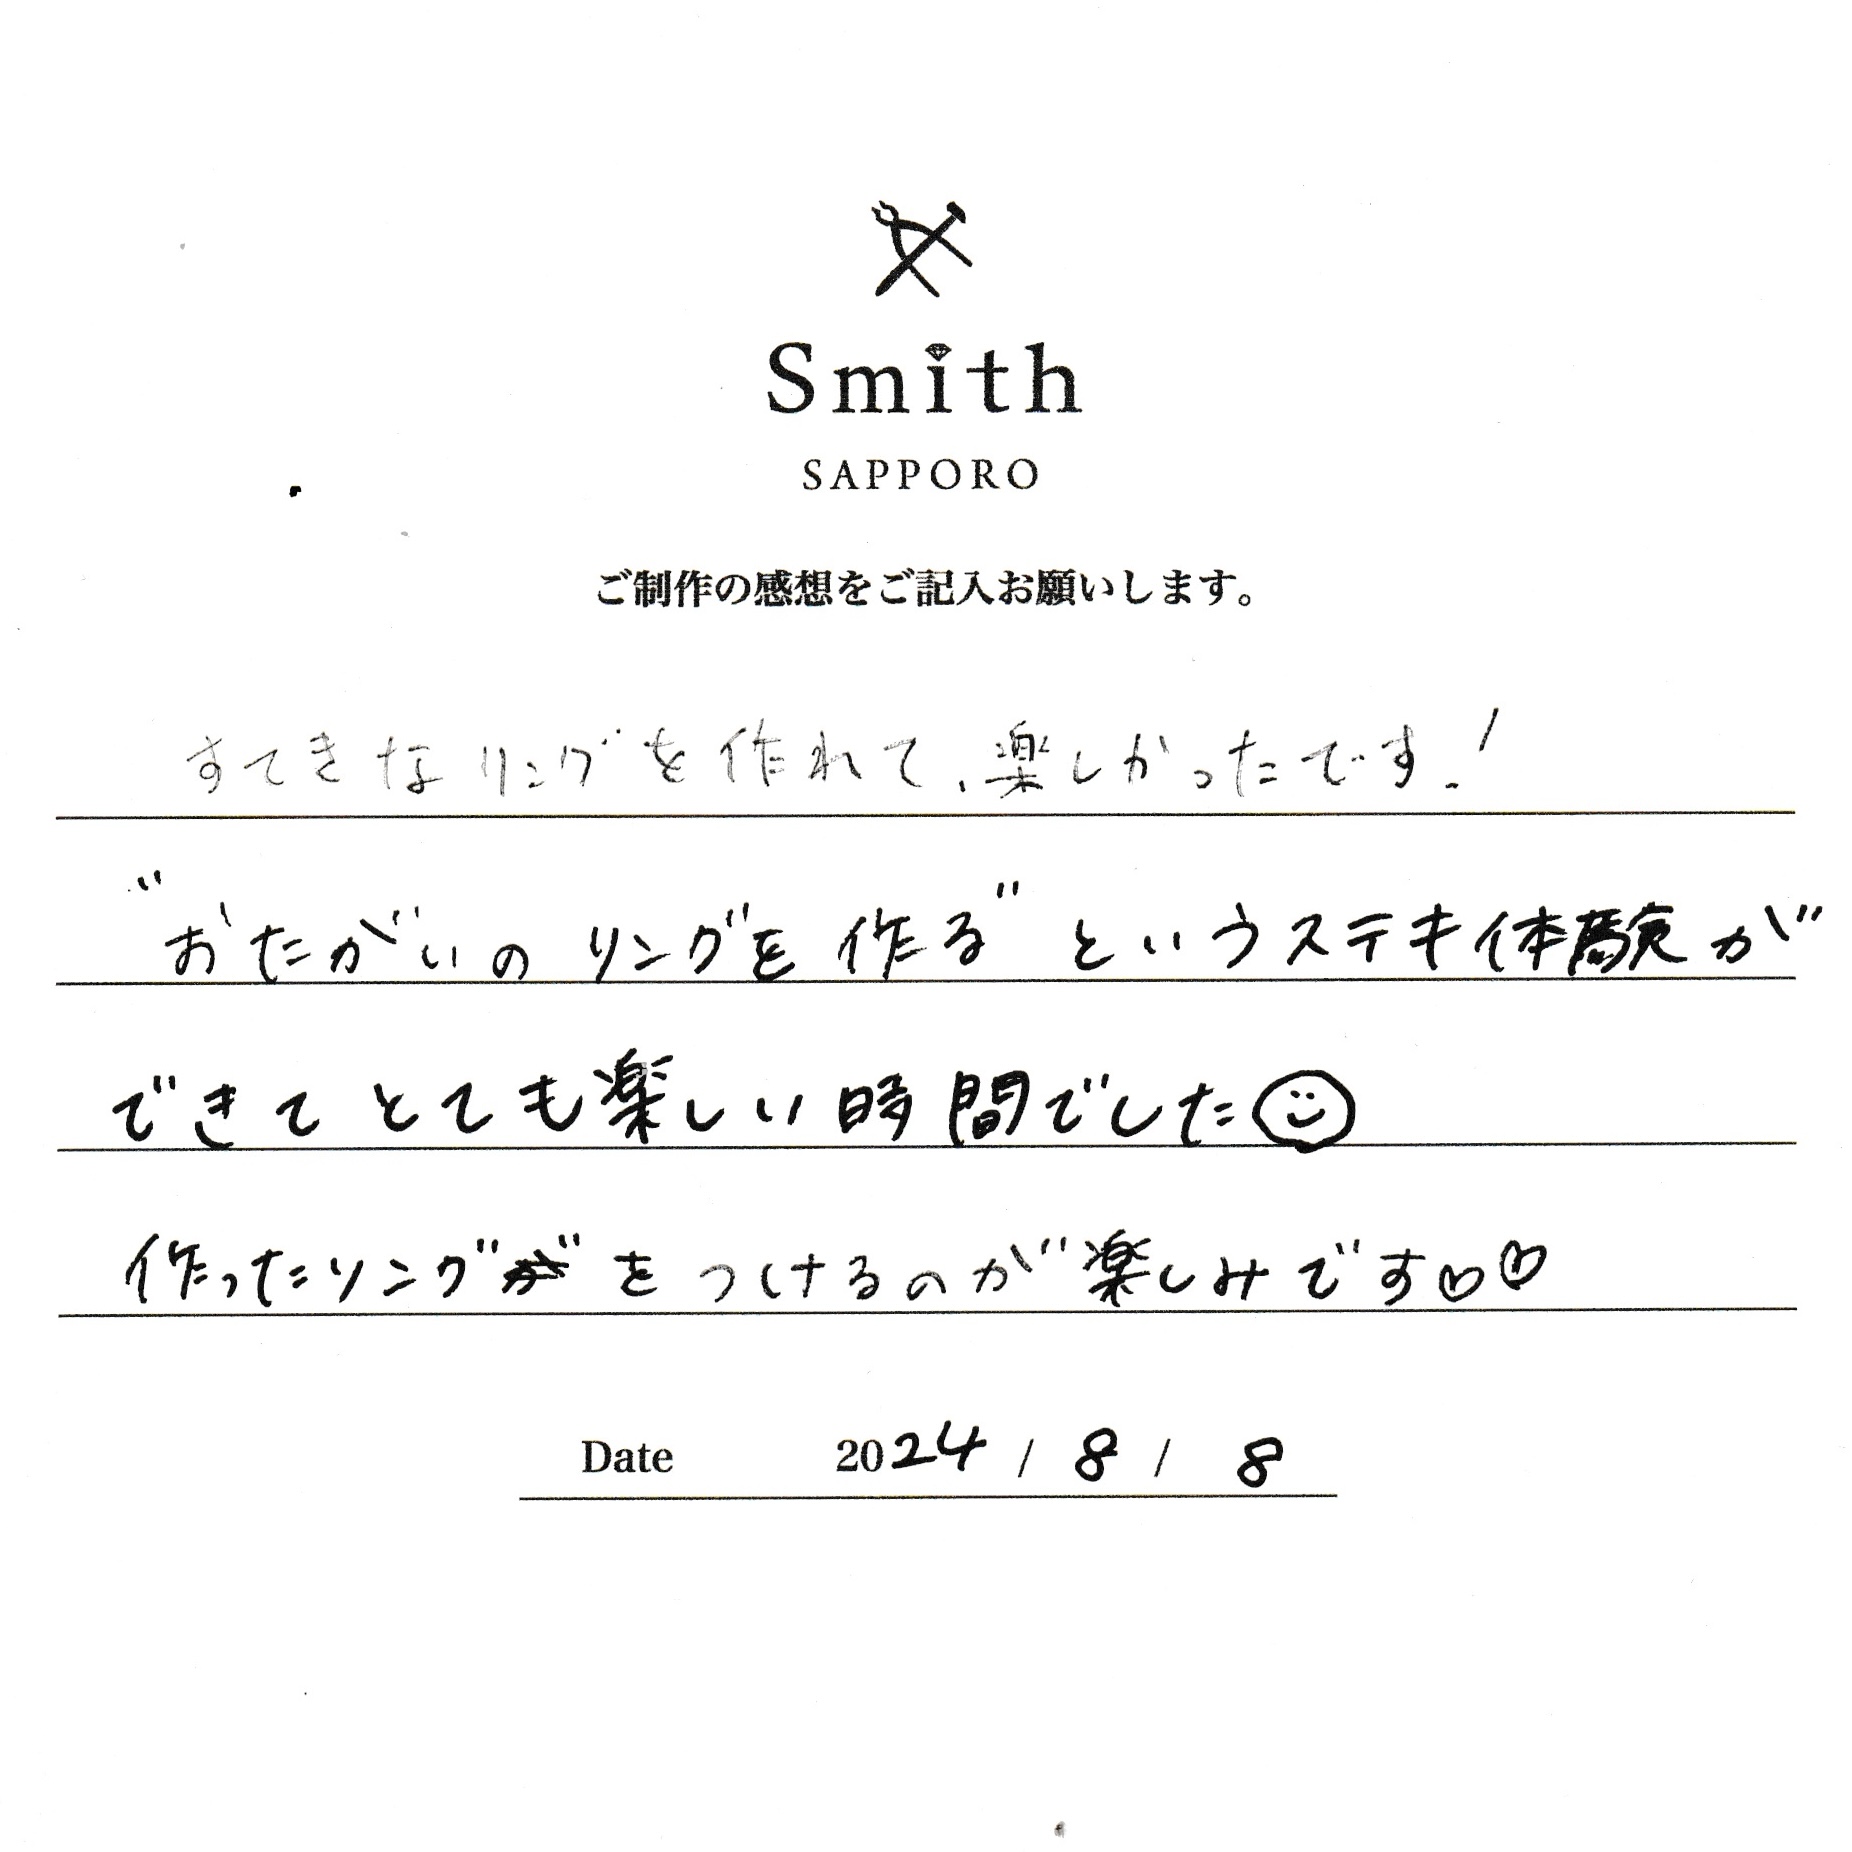 Smith
SAPPORO
ご制作の感想をご記入お願いします。
すてきなリングを作れて、楽しかったです!
"おたがいのリングを作る"というステキ体験が
できてとても楽しい時間でした
作ったリングをつけるのが楽しみです♡♡
Date 2024 / 8 / 8